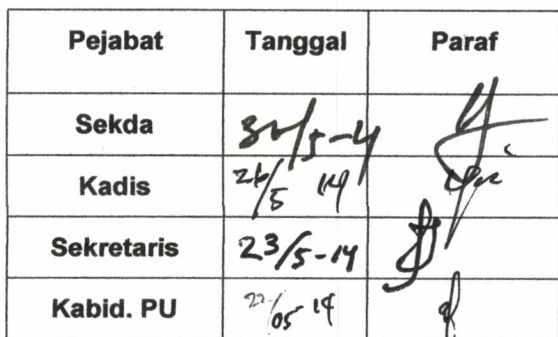 Pejabat Tanggal Paraf
Sekda 30/5-14
Kadis 26/5 14
Sekretaris 23/5-14
Kabid. PU 22/05 14